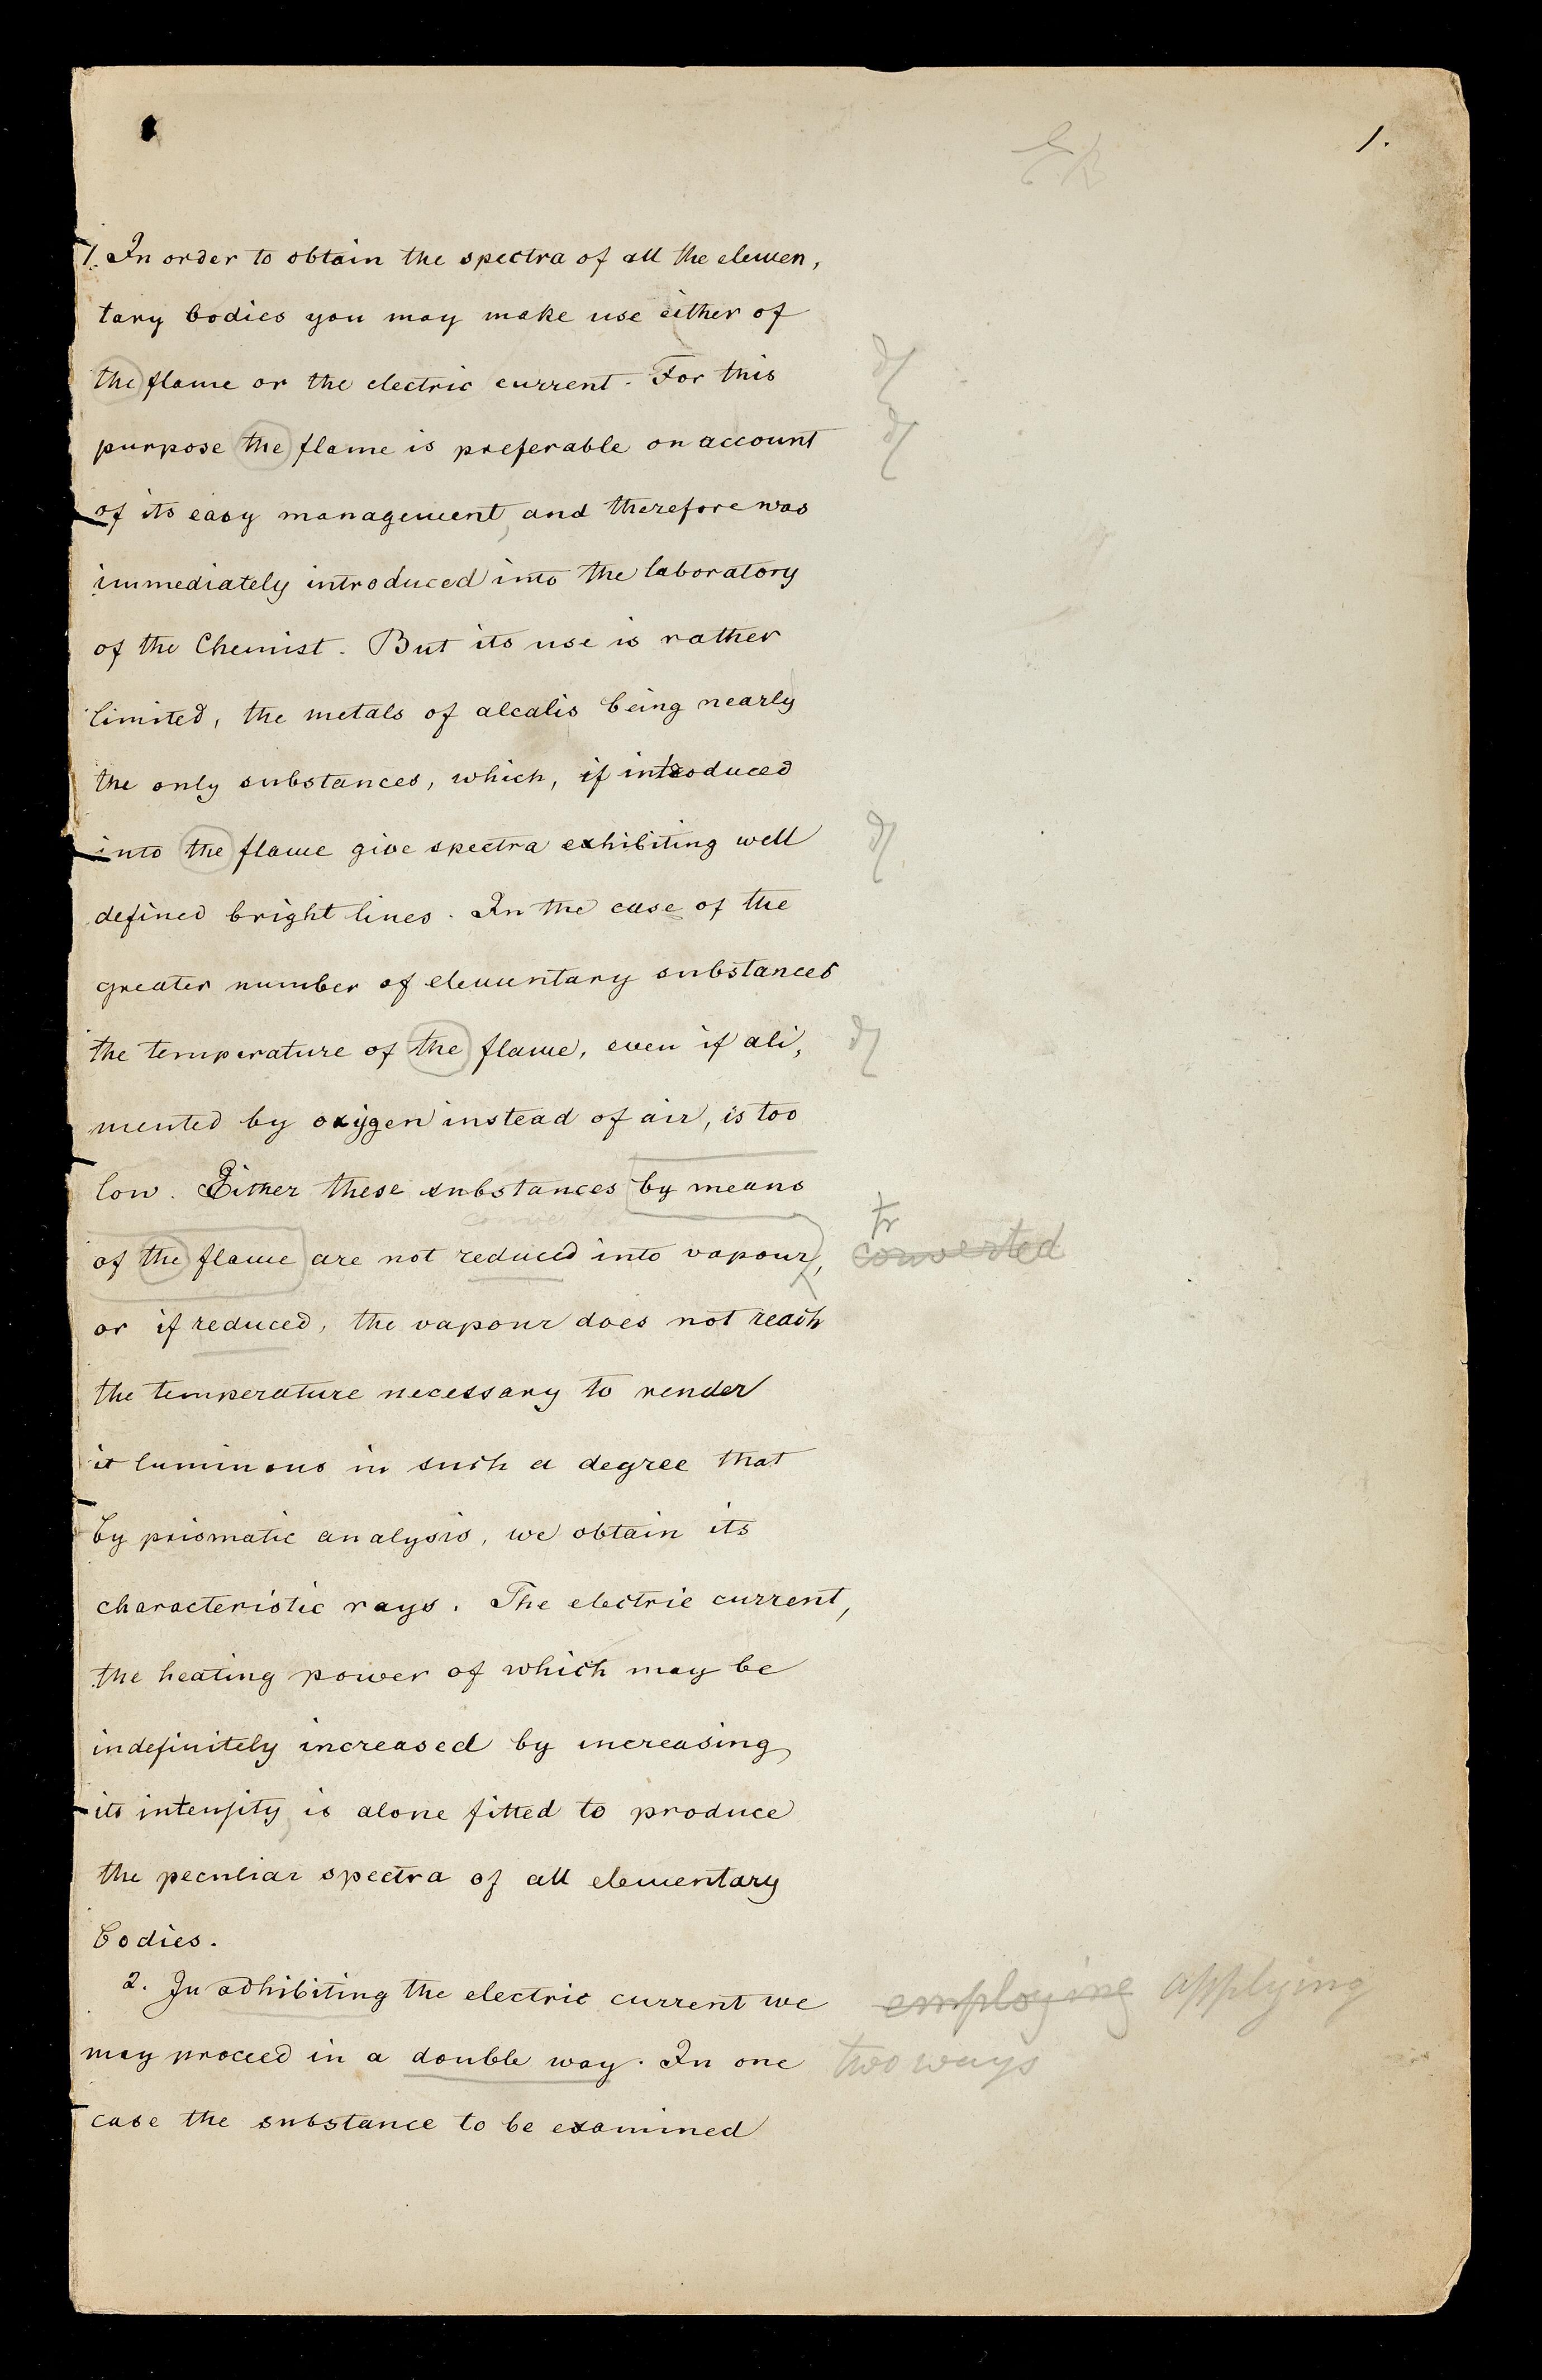 1.
1. In order to obtain the spectra of all the elemen,
tary bodies you may make use either of
the flame or the electric current. For this
purpose the flame is preferable on account
of its easy management, and therefore was
immediately introduced into the laboratory
of the Chemist. But its use is rather
limited, the metals of alcalis being nearly
the only substances, which, if introduced
into the flame give spectra exhibiting well
defined bright lines. In the case of the
greater number of elementary substances
the temperature of the flame, even if ali,
mented by oxygen instead of air, is too
low. Either these substances by means
of the flame are not reduced into vapour, converted
tr
or if reduced, the vapour does not reach
the temperature necessary to render
it luminous in such a degree that
by prismatic analysis, we obtain its
characteristic rays. The electric current,
the heating power of which may be
indefinitely increased by increasing
its intensity, is alone fitted to produce
the peculiar spectra of all elementary
bodies.
2. In adhibiting the electric current we employing applying
may proceed in a double way. In one two ways
case the substance to be examined